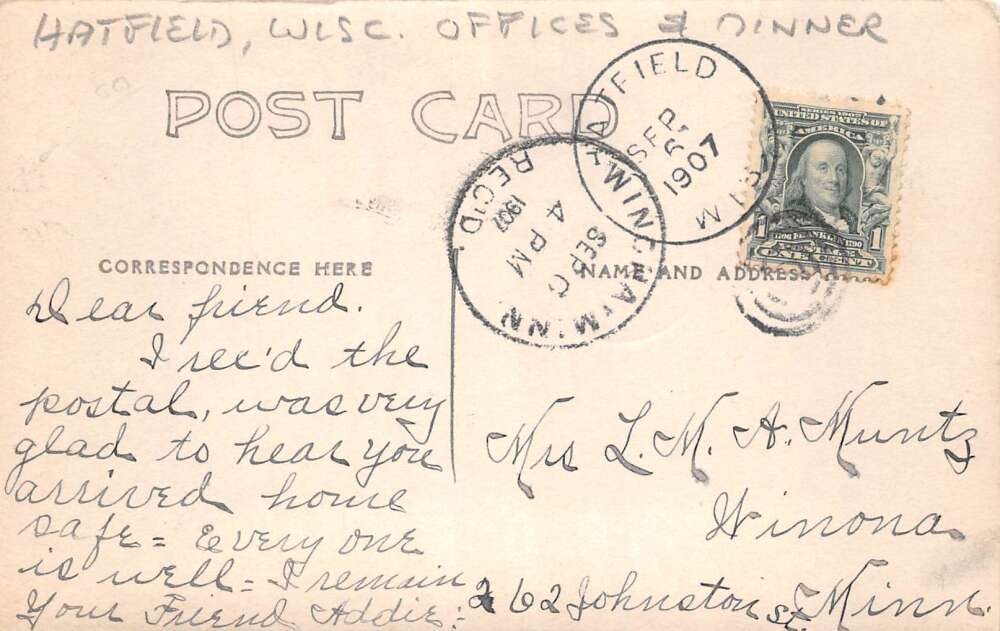 HATFIELD, WISC. OFFICES & DINNER
POST CARD
HATFIELD
SEP
5
1907
WIS.
A M
REC'D.
1907
4 PM
SEP
MINN.
SERIES 1902
UNITED STATES OF
AMERICA
1 FRANKLIN 1
1706 1790
POSTAGE
ONE CENT
CORRESPONDENCE HERE
NAME AND ADDRESS
Dear friend.
I rec'd the
postal, was very
glad to hear you
arrived home
safe = Every one
is well = I remain
Your Friend Addie:
Mrs L. M. A. Muntz
Winona
262 Johnston St. Minn.